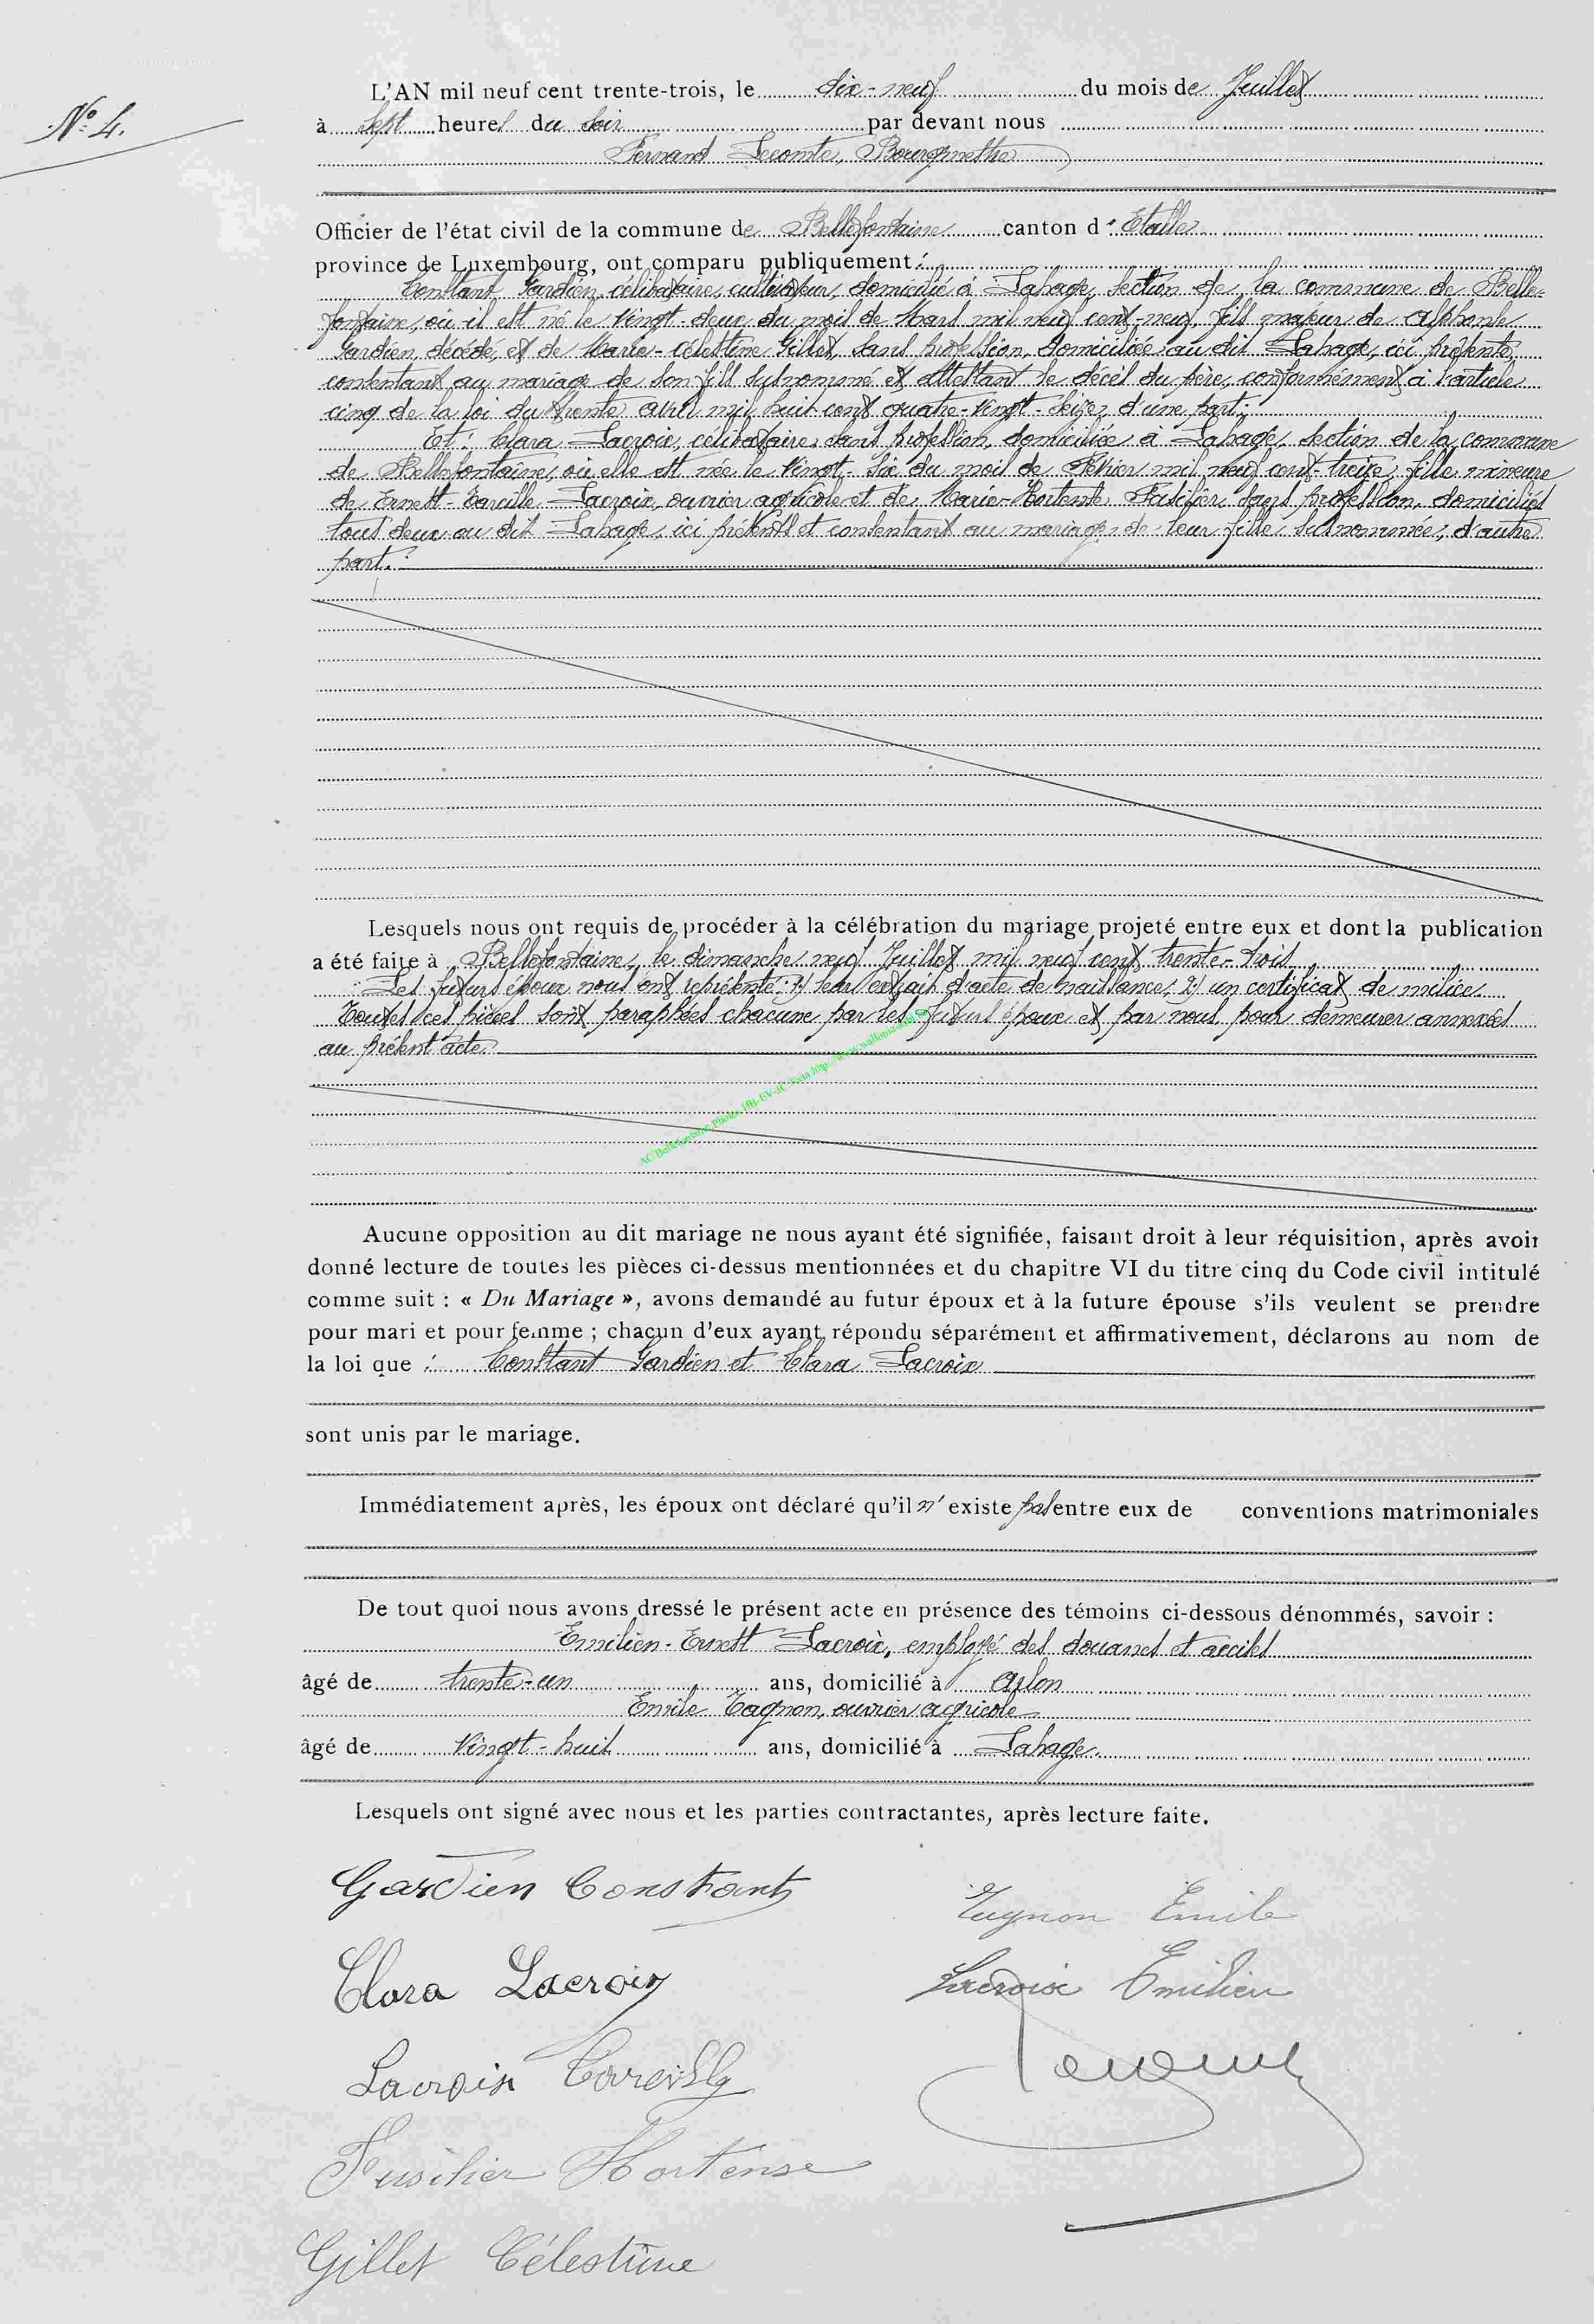 L'AN mil neuf cent trente-trois, le dix-neuf du mois de Juillet
N° 4.
à sept heures du soir par devant nous
Fernand Lecomte, Bourgmestre
Officier de l'état civil de la commune de Bellefontaine canton d'Etalle
province de Luxembourg, ont comparu publiquement :
Constant Gardien, célibataire, cultivateur, domicilié à Lahage, section de la commune de Belle-
fontaine, où il est né le vingt-deux du mois de Mars mil neuf cent-neuf, fils majeur de Alphonse
Gardien, décédé, et de Marie-Célestine Gillet, sans profession, domiciliée au dit Lahage, ici présente,
consentant au mariage de son fils susnommé et attestant le décès du père, conformément à l'article
cinq de la loi du trente avril mil huit cent quatre-vingt-seize, d'une part;
Et : Clara Lacroix, célibataire, sans profession, domiciliée à Lahage, section de la commune
de Bellefontaine, où elle est née le vingt-six du mois de Février mil neuf cent-treize, fille mineure
de Ernest- Lacroix, ouvrier agricole et de Marie-Hortense Fusilier, sans profession, domiciliés
tous deux au dit Lahage, ici présents et consentant au mariage de leur fille susnommée, d'autre
part.
Lesquels nous ont requis de procéder à la célébration du mariage projeté entre eux et dont la publication
a été faite à Bellefontaine, le dimanche neuf Juillet mil neuf cent trente-trois
Les futurs époux nous ont représenté : 1) leur extrait d'acte de naissance, 2) un certificat de milice.
Toutes ces pièces sont paraphées chacune par les futurs époux et par nous pour demeurer annexées
au présent acte.
AC Bellefontaine, Photos HB-EV-JC
Aucune opposition au dit mariage ne nous ayant été signifiée, faisant droit à leur réquisition, après avoir
donné lecture de toutes les pièces ci-dessus mentionnées et du chapitre VI du titre cinq du Code civil intitulé
comme suit : « Du Mariage », avons demandé au futur époux et à la future épouse s'ils veulent se prendre
pour mari et pour femme ; chacun d'eux ayant répondu séparément et affirmativement, déclarons au nom de
la loi que : Constant Gardien et Clara Lacroix
sont unis par le mariage.
Immédiatement après, les époux ont déclaré qu'il n'existe pas entre eux de conventions matrimoniales
De tout quoi nous avons dressé le présent acte en présence des témoins ci-dessous dénommés, savoir :
Emilien-Ernest Lacroix, employé des douanes et accises
âgé de trente-un ans, domicilié à Arlon
Emile Tagnon, ouvrier agricole
âgé de vingt-huit ans, domicilié à Lahage.
Lesquels ont signé avec nous et les parties contractantes, après lecture faite.
Gardien Constant
Tagnon Emile
Clara Lacroix
Lacroix Emilien
Lacroix
Fusilier Hortense
Gillet Célestine